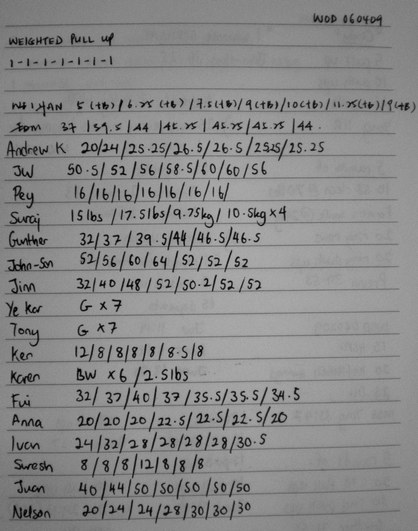 WOD 060409
WEIGHTED PULL UP
1-1-1-1-1-1-1
WEIYAN 5 (+B) / 6.25 (+B) / 7.5 (+B) / 9 (+B) / 10 (+B) / 11.25 (+B) / 9 (+B)
37 / 39.5 / 44 / 45.25 / 45.25 / 45.25 / 44
Andrew K 20/24/25.25/26.5/26.5/25.25/25.25
JW 50.5/52/56/58.5/60/60/56
Pey 16/16/16/16/16/16/16/
Suraj 15lbs / 17.5lbs / 9.75kg / 10.5kg × 4
Gunther 32/37/39.5/44/46.5/46.5
John-San 52/56/60/64/52/52/52
Jinn 32/40/48/52/50.2/52/52
Ye Kar G × 7
Tony G × 7
Ken 12/8/8/8/8/8.5/8
Karen BW × 6 / 2.5lbs
Fui 32/37/40/37/35.5/35.5/34.5
Anna 20/20/20/22.5/22.5/22.5/20
Ivan 24/32/28/28/28/28/30.5
Suresh 8/8/8/12/8/8/8
Juan 40/44/50/50/50/50/50
Nelson 20/24/24/28/30/30/30